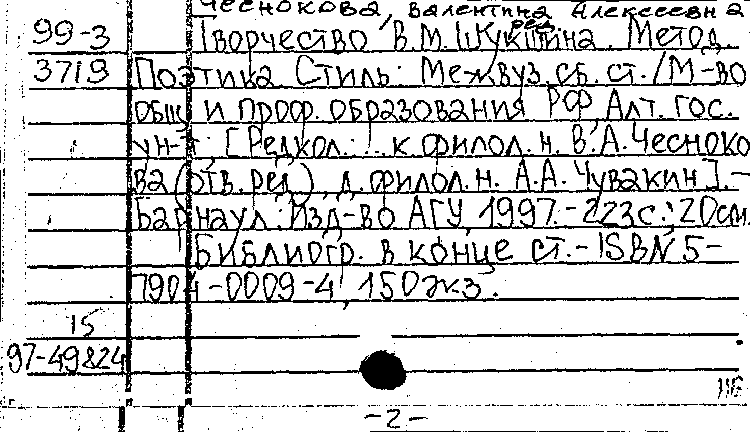 Чеснокова, Валентина Алексеевна
ред.
99-3 Творчество В.М. Шукшина. Метод.
3719 Поэтика. Стиль: Межвуз. сб. ст. / М-во
общ. и проф. образования РФ, Алт. гос.
ун-т; [Редкол.: .. к. филол. н. В.А. Чесноко
ва (отв. ред.), д. филол. н. А.А. Чувакин]. -
Барнаул: Изд-во АГУ, 1997. - 223с.; 20см.
Библиогр. в конце ст. - ISBN 5-
7904-0009-4, 150экз.
15
97-49824
-2-